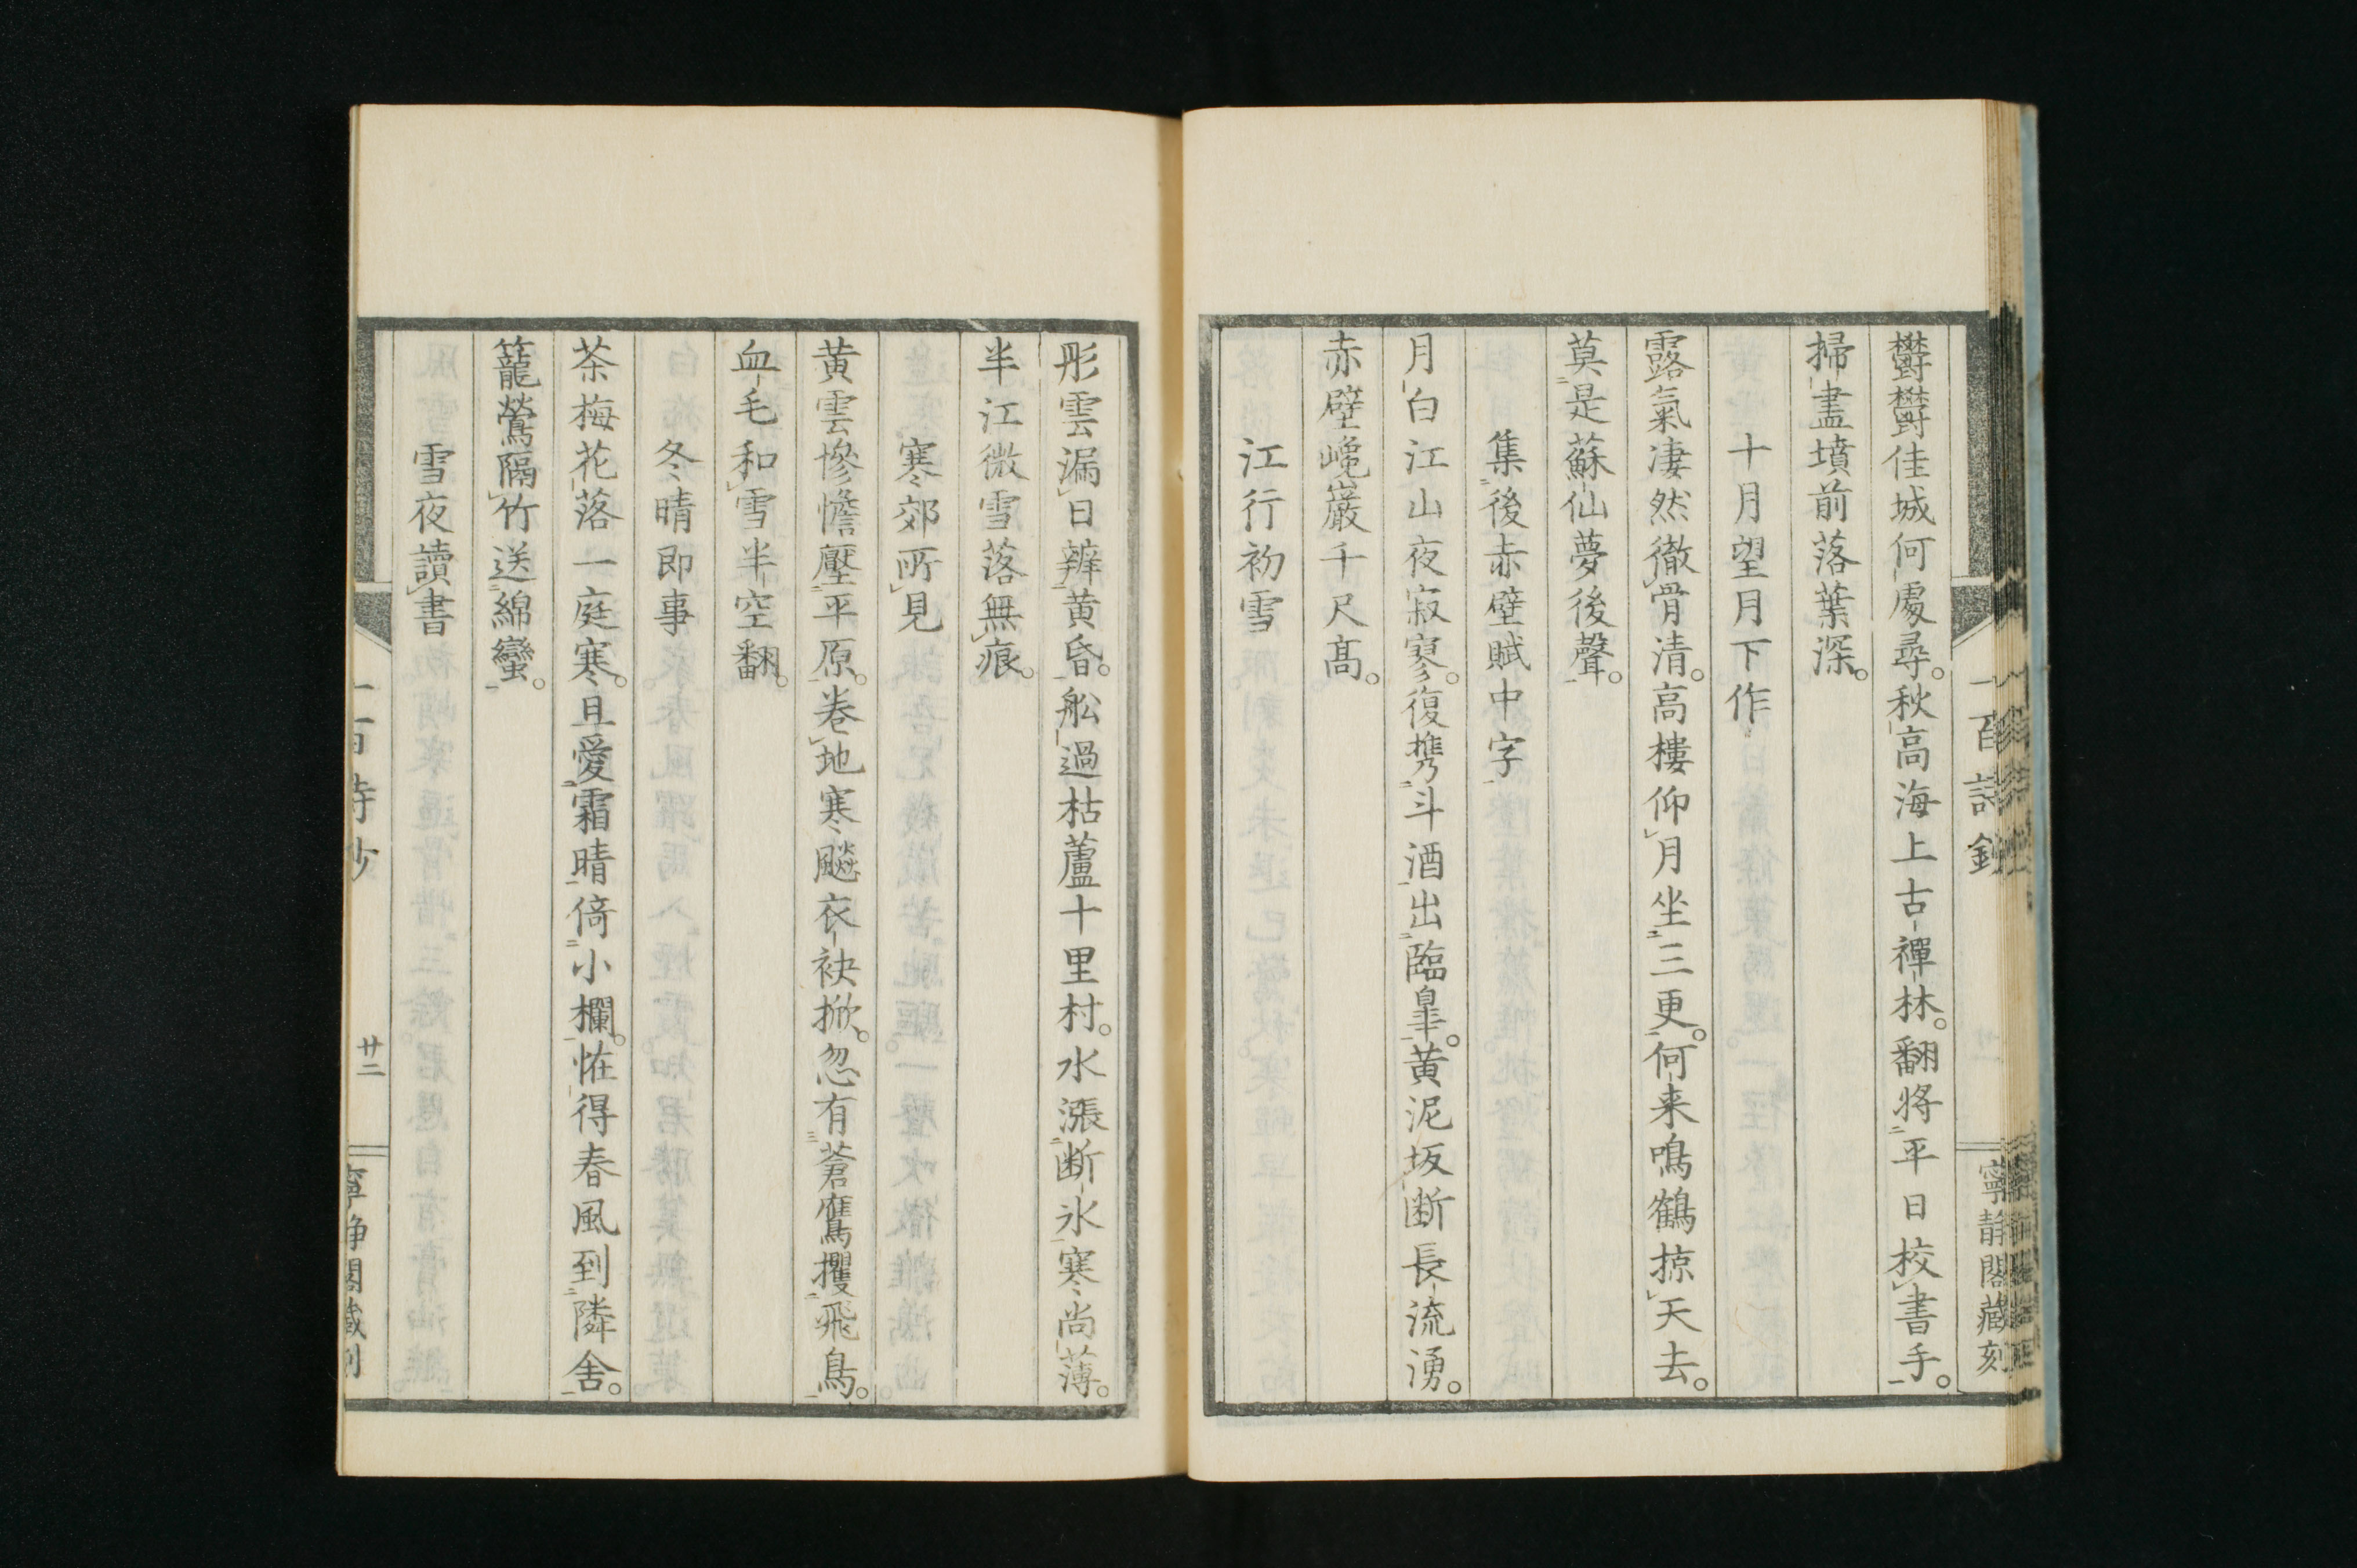 一百詩鈔
寧靜閣藏刻
鬱鬱佳城何處尋。秋高海上古禪林。翻將平日校書手。
掃盡墳前落葉深。
十月望月下作
露氣凄然徹骨清。高樓仰月坐三更。何来鳴鶴掠天去。
莫是蘇仙夢後聲。
集後赤壁賦中字
月白江山夜寂寥。復携斗酒出臨皐。黄泥坂断長流湧。
赤壁巉巖千尺髙。
江行初雪
彤雲漏日辨黄昏。舩過枯蘆十里村。水漲断氷寒尚薄。
半江微雪落無痕。
寒郊所見
黄雲慘憺壓平原。巻地寒飈衣袂掀。忽有蒼鷹攫飛鳥。
血毛和雪半空翻。
冬晴即事
茶梅花落一庭寒。且愛霜晴倚小欄。恠得春風到隣舎。
籠鶯隔竹送綿蠻。
雪夜讀書
廿二